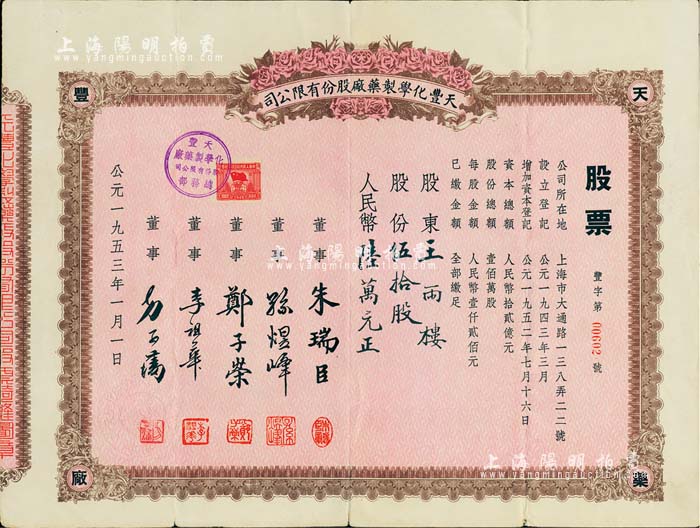 上海陽明拍賣
www.yangmingauction.com
上海陽明拍賣
www.yangmingauction.com
天豐化學製藥廠股份有限公司
天
豐
藥
廠
股票
豐字第 00602 號
公司所在地 上海市大通路一三八弄二二號
設立登記 公元一九四三年三月
增加資本登記 公元一九五二年七月十六日
資本總額 人民幣拾貳億元
股份總額 壹佰萬股
每股金額 人民幣壹仟貳佰元
已繳金額 全部繳足
股東 王雨樓
股份 伍拾股
人民幣 陸萬元正
董事 朱瑞臣
董事 孫煜峰
董事 鄭子榮
董事 李祖華
董事
公元一九五三年一月一日
天豐
化學製藥廠
股份有限公司
總務部
上海陽明拍賣
www.yangmingauction.com